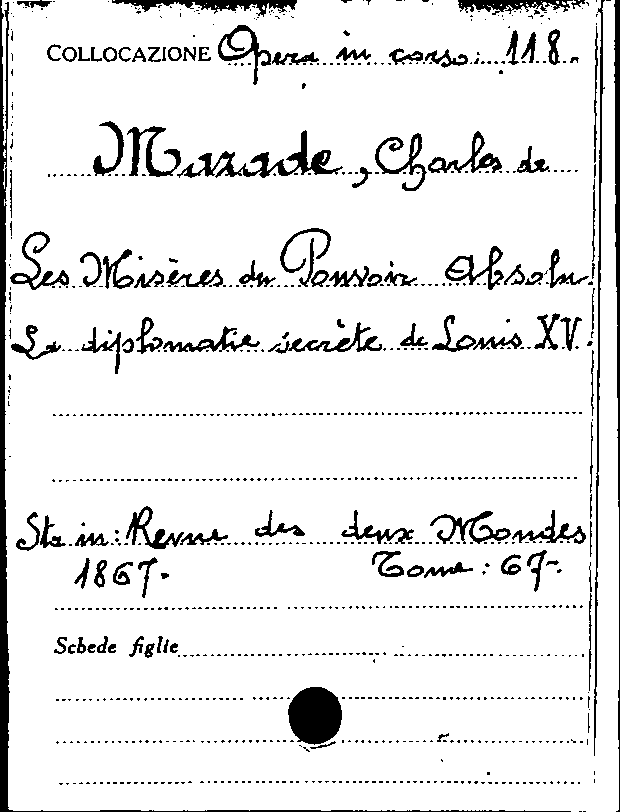 COLLOCAZIONE Opera in corso: 118.
Mazade, Charles de
Les Misères du Pouvoir Absolu.
La diplomatie secrète de Louis XV.
Sta in: Revue des deux Mondes
1867. Tome: 67.
Schede figlie